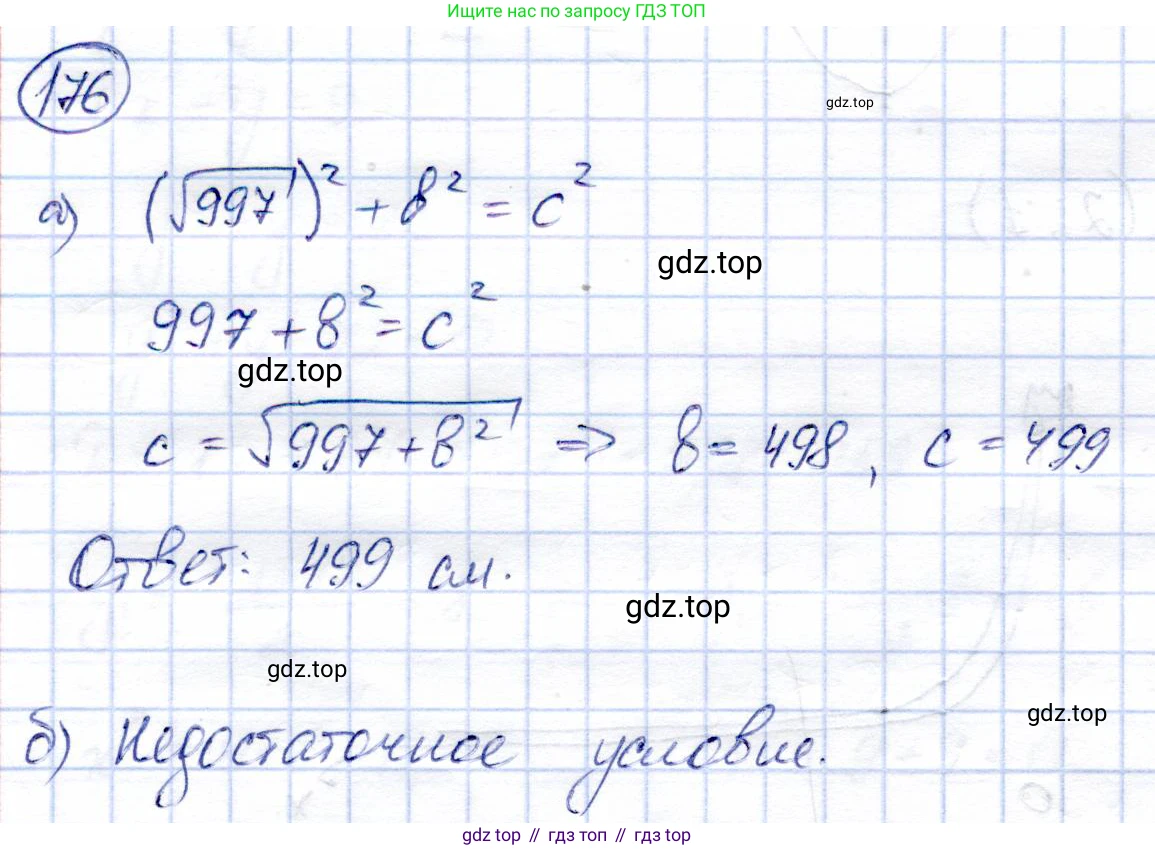 Ищите нас по запросу ГДЗ ТОП
176
gdz.top
а) (√997)² + в² = с²
gdz.top
997 + в² = с²
gdz.top
с = √997 + в² => в = 498, с = 499
Ответ: 499 см.
gdz.top
gdz.top
gdz.top
б) Недостаточное условие.
gdz.top // гдз топ // гдз.top